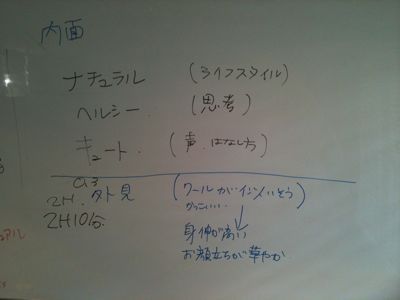 内面
ナチュラル (ライフスタイル)
ヘルシー. (思考)
キュート. (声.はなし方)
2H. 外見 (クールが
かっこいい.
2H10分.
身伸が高い
お顔立ちが華やか.